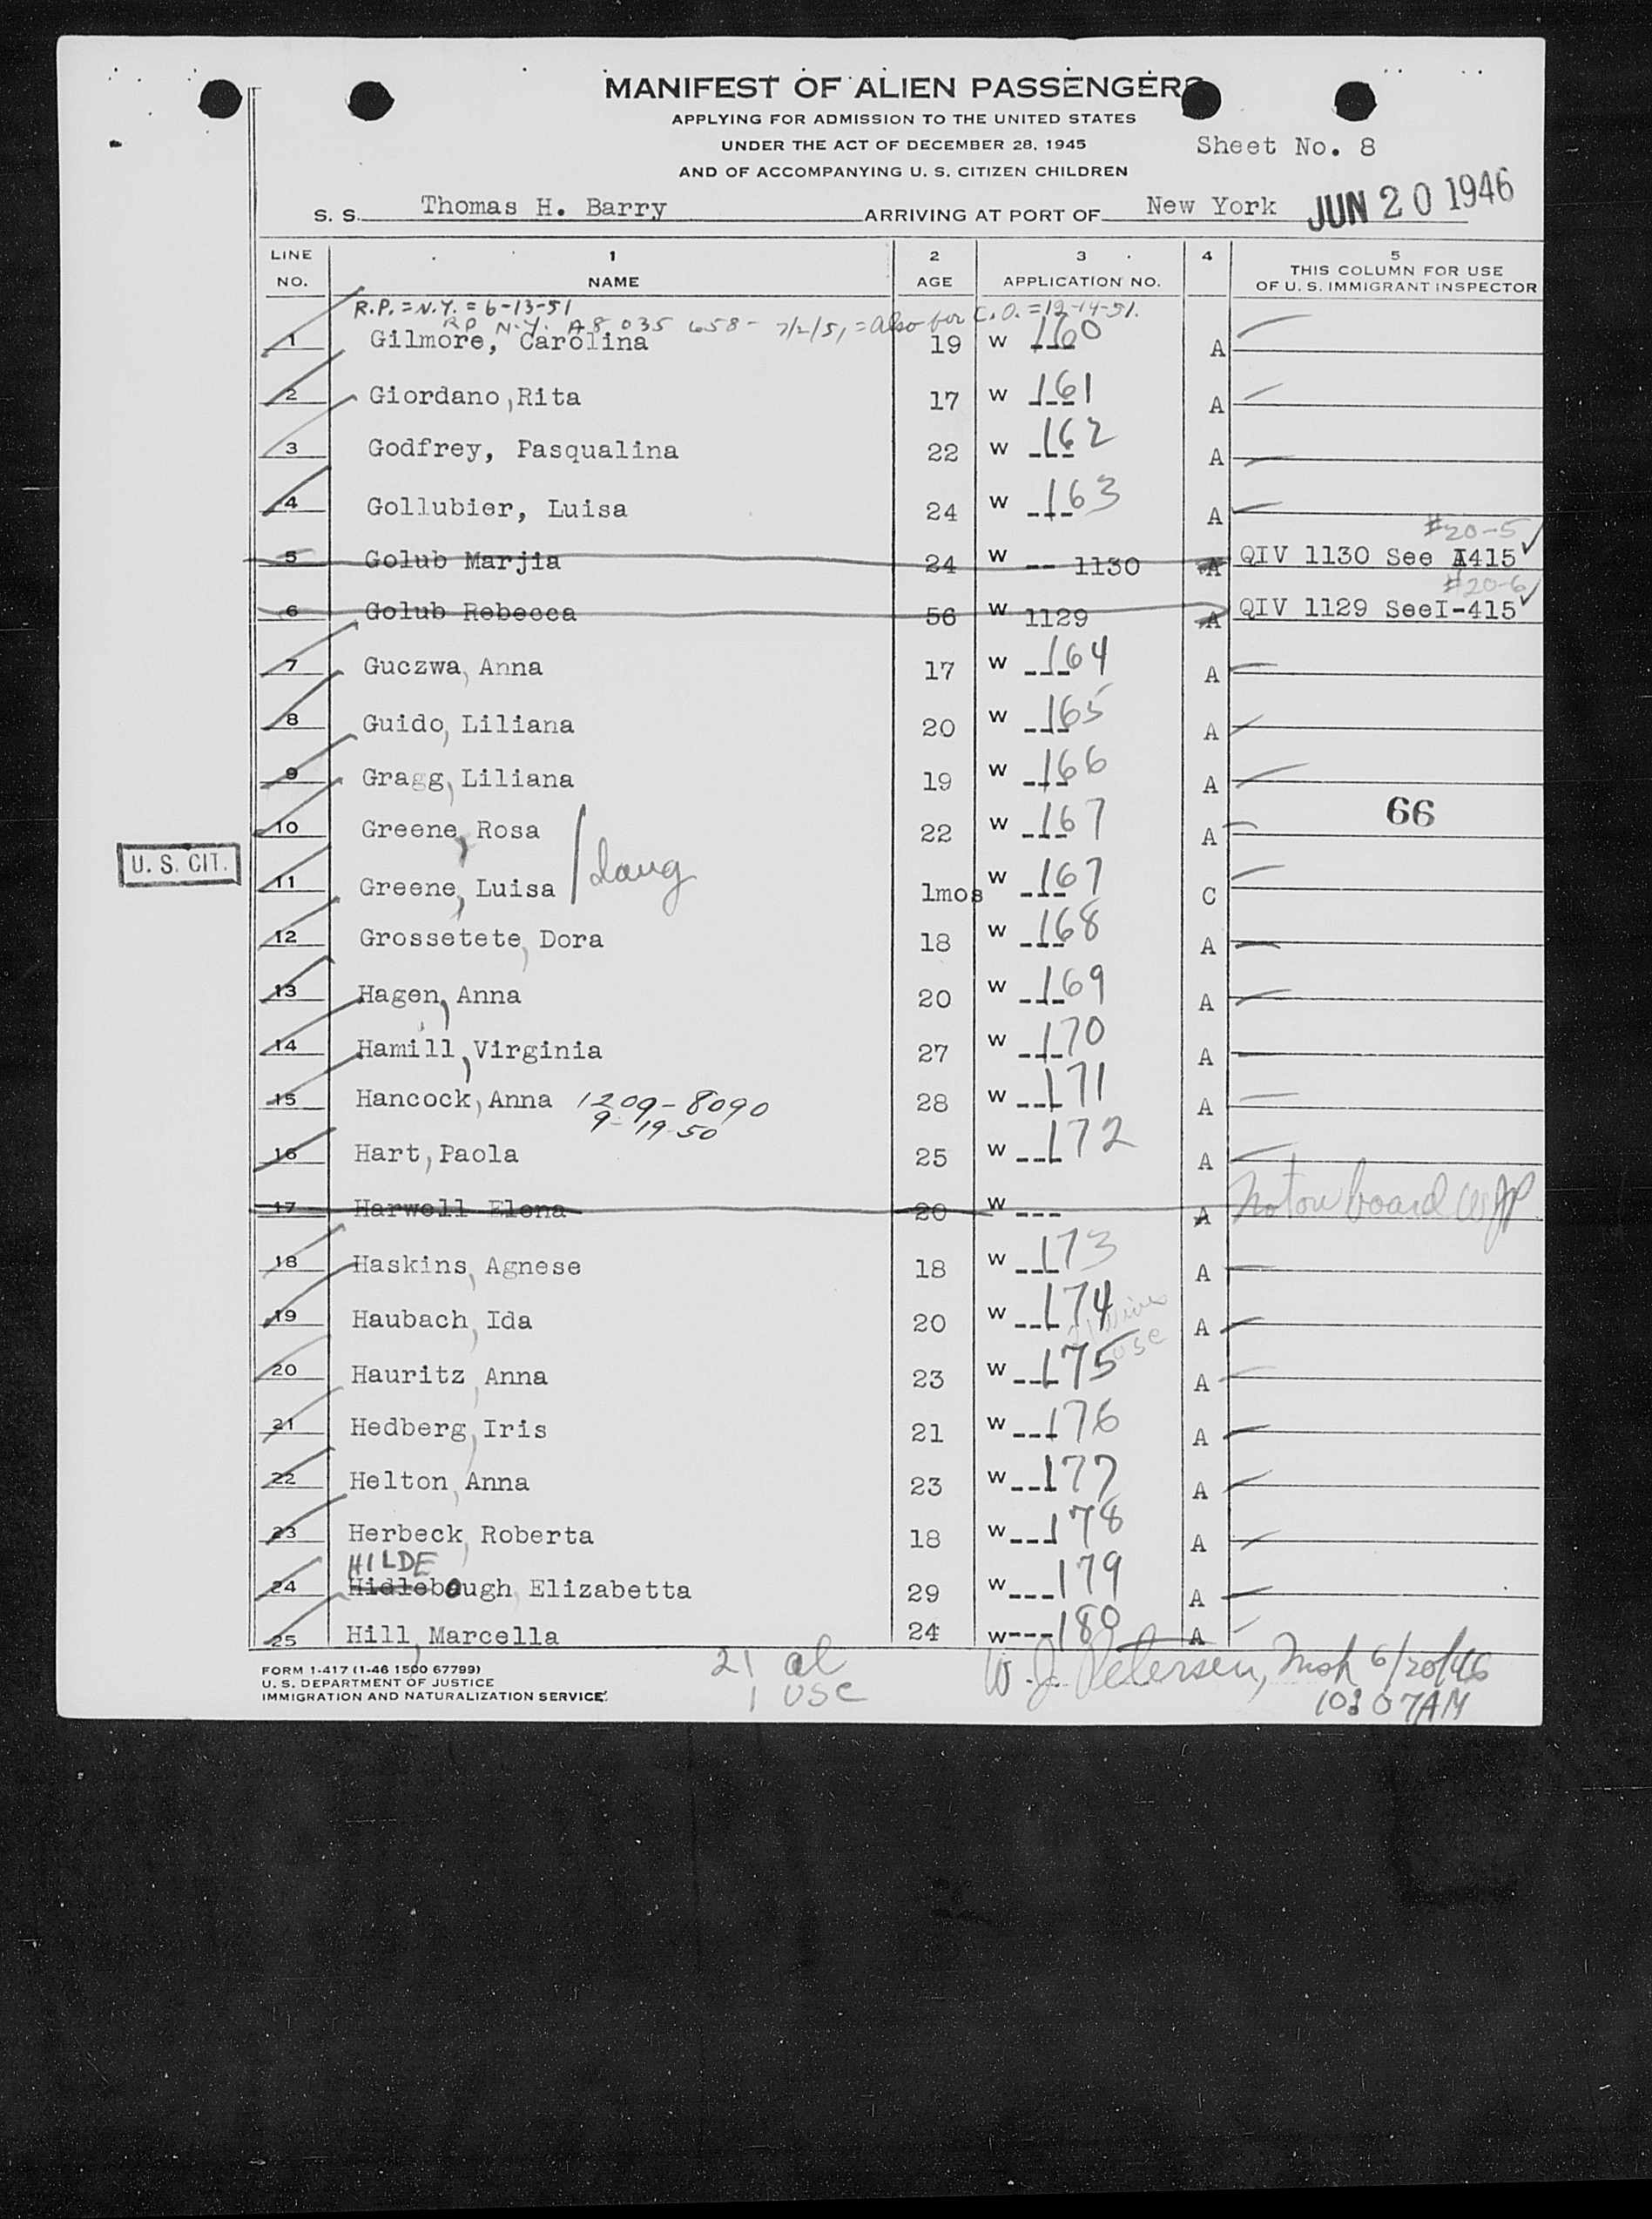 MANIFEST OF ALIEN PASSENGERS
APPLYING FOR ADMISSION TO THE UNITED STATES
UNDER THE ACT OF DECEMBER 28, 1945
Sheet No. 8
AND OF ACCOMPANYING U. S. CITIZEN CHILDREN
S. S. Thomas H. Barry ARRIVING AT PORT OF New York JUN 20 1946
LINE NO. 1 NAME 2 AGE 3 APPLICATION NO. 4 5 THIS COLUMN FOR USE OF U. S. IMMIGRANT INSPECTOR
R.P. = N.Y. = 6-13-51
RP N.Y. A8 035 658 - 7/2/51 = Also for C.O. = 12-14-51.
1 Gilmore, Carolina 19 W 160 A
2 Giordano, Rita 17 W 161 A
3 Godfrey, Pasqualina 22 W 162 A
4 Gollubier, Luisa 24 W 163 A
#20-5
5 Golub Marjia 24 W -- 1130 A QIV 1130 See I415
#20-6
6 Golub Rebecca 56 W 1129 A QIV 1129 SeeI-415
7 Guczwa, Anna 17 W 164 A
8 Guido, Liliana 20 W 165 A
9 Gragg, Liliana 19 W 166 A
66
10 Greene, Rosa 22 W 167 A
U. S. CIT.
11 Greene, Luisa / daug 1mos W 167 C
12 Grossetete, Dora 18 W 168 A
13 Hagen, Anna 20 W 169 A
14 Hamill, Virginia 27 W 170 A
15 Hancock, Anna 1209-8090 28 W 171 A
9-19-50
16 Hart, Paola 25 W 172 A
17 Harwell Elena 20 W --- A Not on board WJP
18 Haskins, Agnese 18 W 173 A
19 Haubach, Ida 20 W 174 A
USC
20 Hauritz, Anna 23 W 175 A
21 Hedberg, Iris 21 W 176 A
22 Helton, Anna 23 W 177 A
23 Herbeck, Roberta 18 W 178 A
HILDE
24 Hidlebough, Elizabetta 29 W 179 A
25 Hill, Marcella 24 W 180 A
FORM I-417 (1-46 1500 67799)
U. S. DEPARTMENT OF JUSTICE
IMMIGRATION AND NATURALIZATION SERVICE
21 al
1 USC
W. J. Petersen, Insp 6/20/46
10:07AM